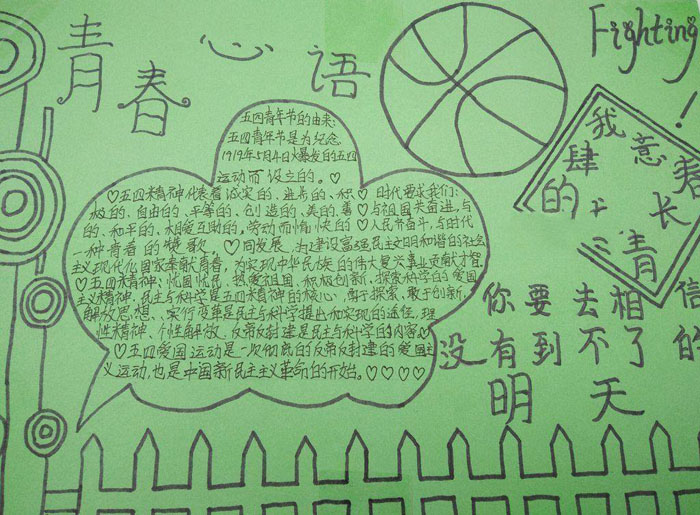 青春心语
Fighting!
五四青年节的由来:
五四青年节是为纪念
1919年5月4日爆发的五四
运动而设立的。
♡五四精神代表着诚实的、进步的、积 ♡时代要求我们:
极的、自由的、平等的、创造的、美的、善 ♡与祖国共奋进,与
的、和平的、相爱互助的,劳动而愉快的 ♡人民齐奋斗,与时代
一种青春的赞歌。 ♡同发展,为建设富强民主文明和谐的社会
主义现代化国家奉献青春,为实现中华民族的伟大复兴事业贡献才智
♡五四精神:忧国忧民,热爱祖国,积极创新,探索科学的爱国
主义精神,民主与科学是五四精神的核心,勇于探索、敢于创新、
解放思想、实行变革是民主与科学提出和实现的途径,理
性精神、个性解放、反帝反封建是民主与科学的内容。
♡五四爱国运动是一次彻底的反帝反封建的爱国主
义运动,也是中国新民主主义革命的开始。♡♡♡♡
我
肆意
的长
青
你要去相信
没有到不了的
明天